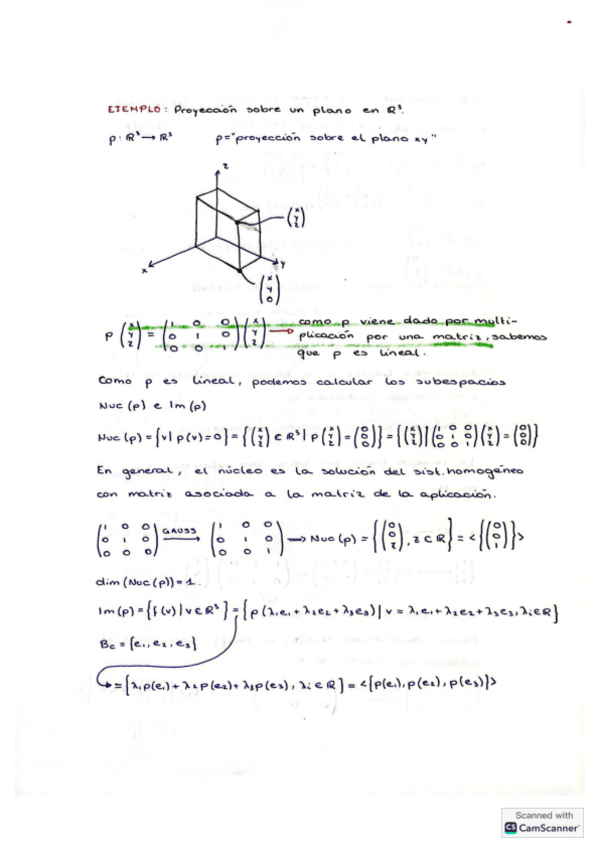 EJEMPLO: Proyección sobre un plano en ℝ³.
p: ℝ³ → ℝ³ p="proyección sobre el plano xy"
z
(x y z)
x y
(x y 0)
p (x y z) = (1 0 0 / 0 1 0 / 0 0 1)(x y z) → como p viene dado por multi-
plicación por una matriz, sabemos
que p es lineal.
Como p es lineal, podemos calcular los subespacios
Nuc (p) e Im (p)
Nuc (p) = {v | p(v)=0} = {(x y z) ∈ ℝ³ | p (x y z) = (0 0 0)} = {(x y z) | (1 0 0 / 0 1 0 / 0 0 1)(x y z) = (0 0 0)}
En general, el núcleo es la solución del sist. homogéneo
con matriz asociada a la matriz de la aplicación.
(1 0 0 / 0 1 0 / 0 0 0) GAUSS → (1 0 0 / 0 1 0 / 0 0 1) → Nuc (p) = {(0 0 z), z ∈ ℝ} = <{(0 0 1)}>
dim (Nuc (p)) = 1.
Im (p) = {f (v) | v ∈ ℝ³} = {p (λ₁e₁ + λ₂e₂ + λ₃e₃) | v = λ₁e₁ + λ₂e₂ + λ₃e₃, λi ∈ ℝ}
Bc = {e₁, e₂, e₃}
= {λ₁p(e₁) + λ₂p(e₂) + λ₃p(e₃), λi ∈ ℝ} = <{p(e₁), p(e₂), p(e₃)}>
Scanned with
CS CamScanner